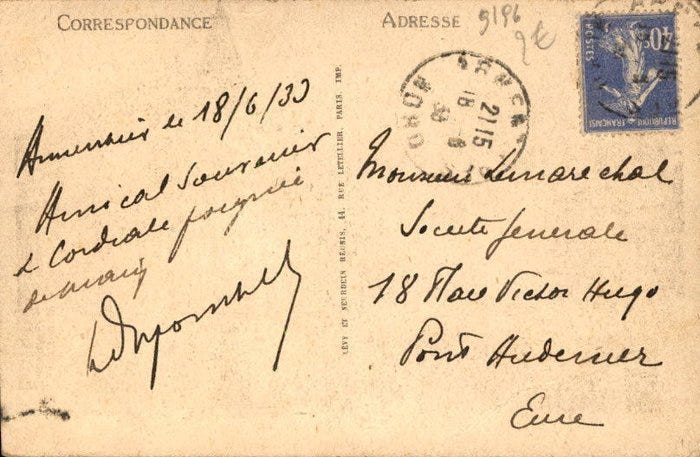 CORRESPONDANCE
ADRESSE
9196
2€
40c
POSTES
REPUBLIQUE FRANÇAISE
21 15
18 - 6
33
le 18/6/33
Amical Souvenir
& Cordiale poignée
de main
LÉVY ET NEURDEIN RÉUNIS, 44, RUE LETELLIER, PARIS. IMP.
Monsieur Lemarechal
Societe Generale
18 Place Victor Hugo
Pont Audemer
Eure